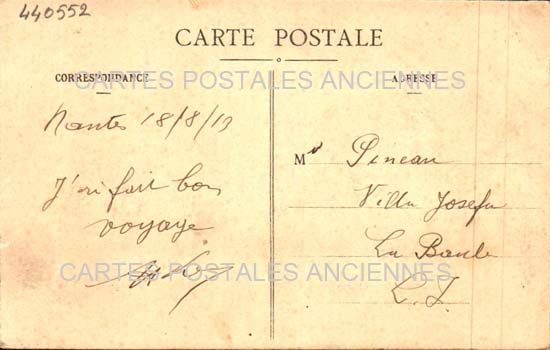 440552
CARTE POSTALE
CORRESPONDANCE
ADRESSE
CARTES POSTALES ANCIENNES
Nantes 18/8/13
J'ai fait bon
voyage
M Pineau
Villa Josefa
La Baule
L. I.
CARTES POSTALES ANCIENNES